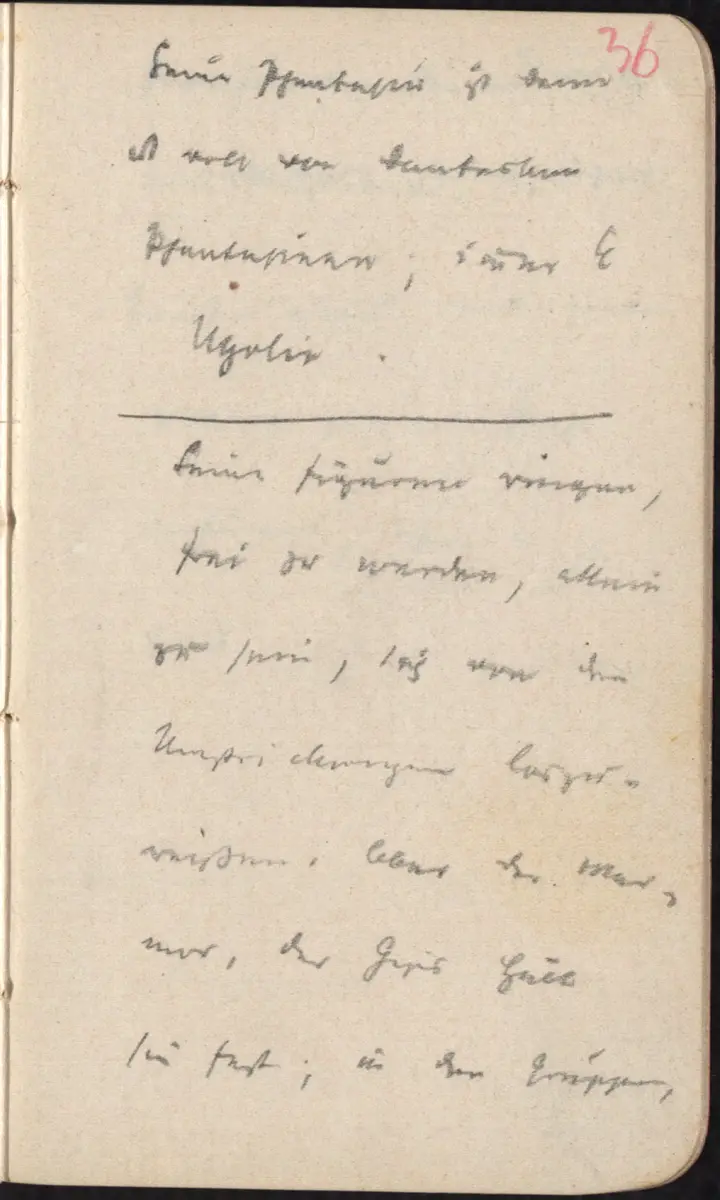 36
Seine Phantasie ist denn
ist voll von dantesken
Phantasieen; immer
Ugolin.
Seine Figuren ringen,
frei zu werden, allein
zu sein, sich von den
Umstrickungen loszu-
reißen. Aber der Mar-
mor, der Gips hält
sie fest; in den Gruppen,